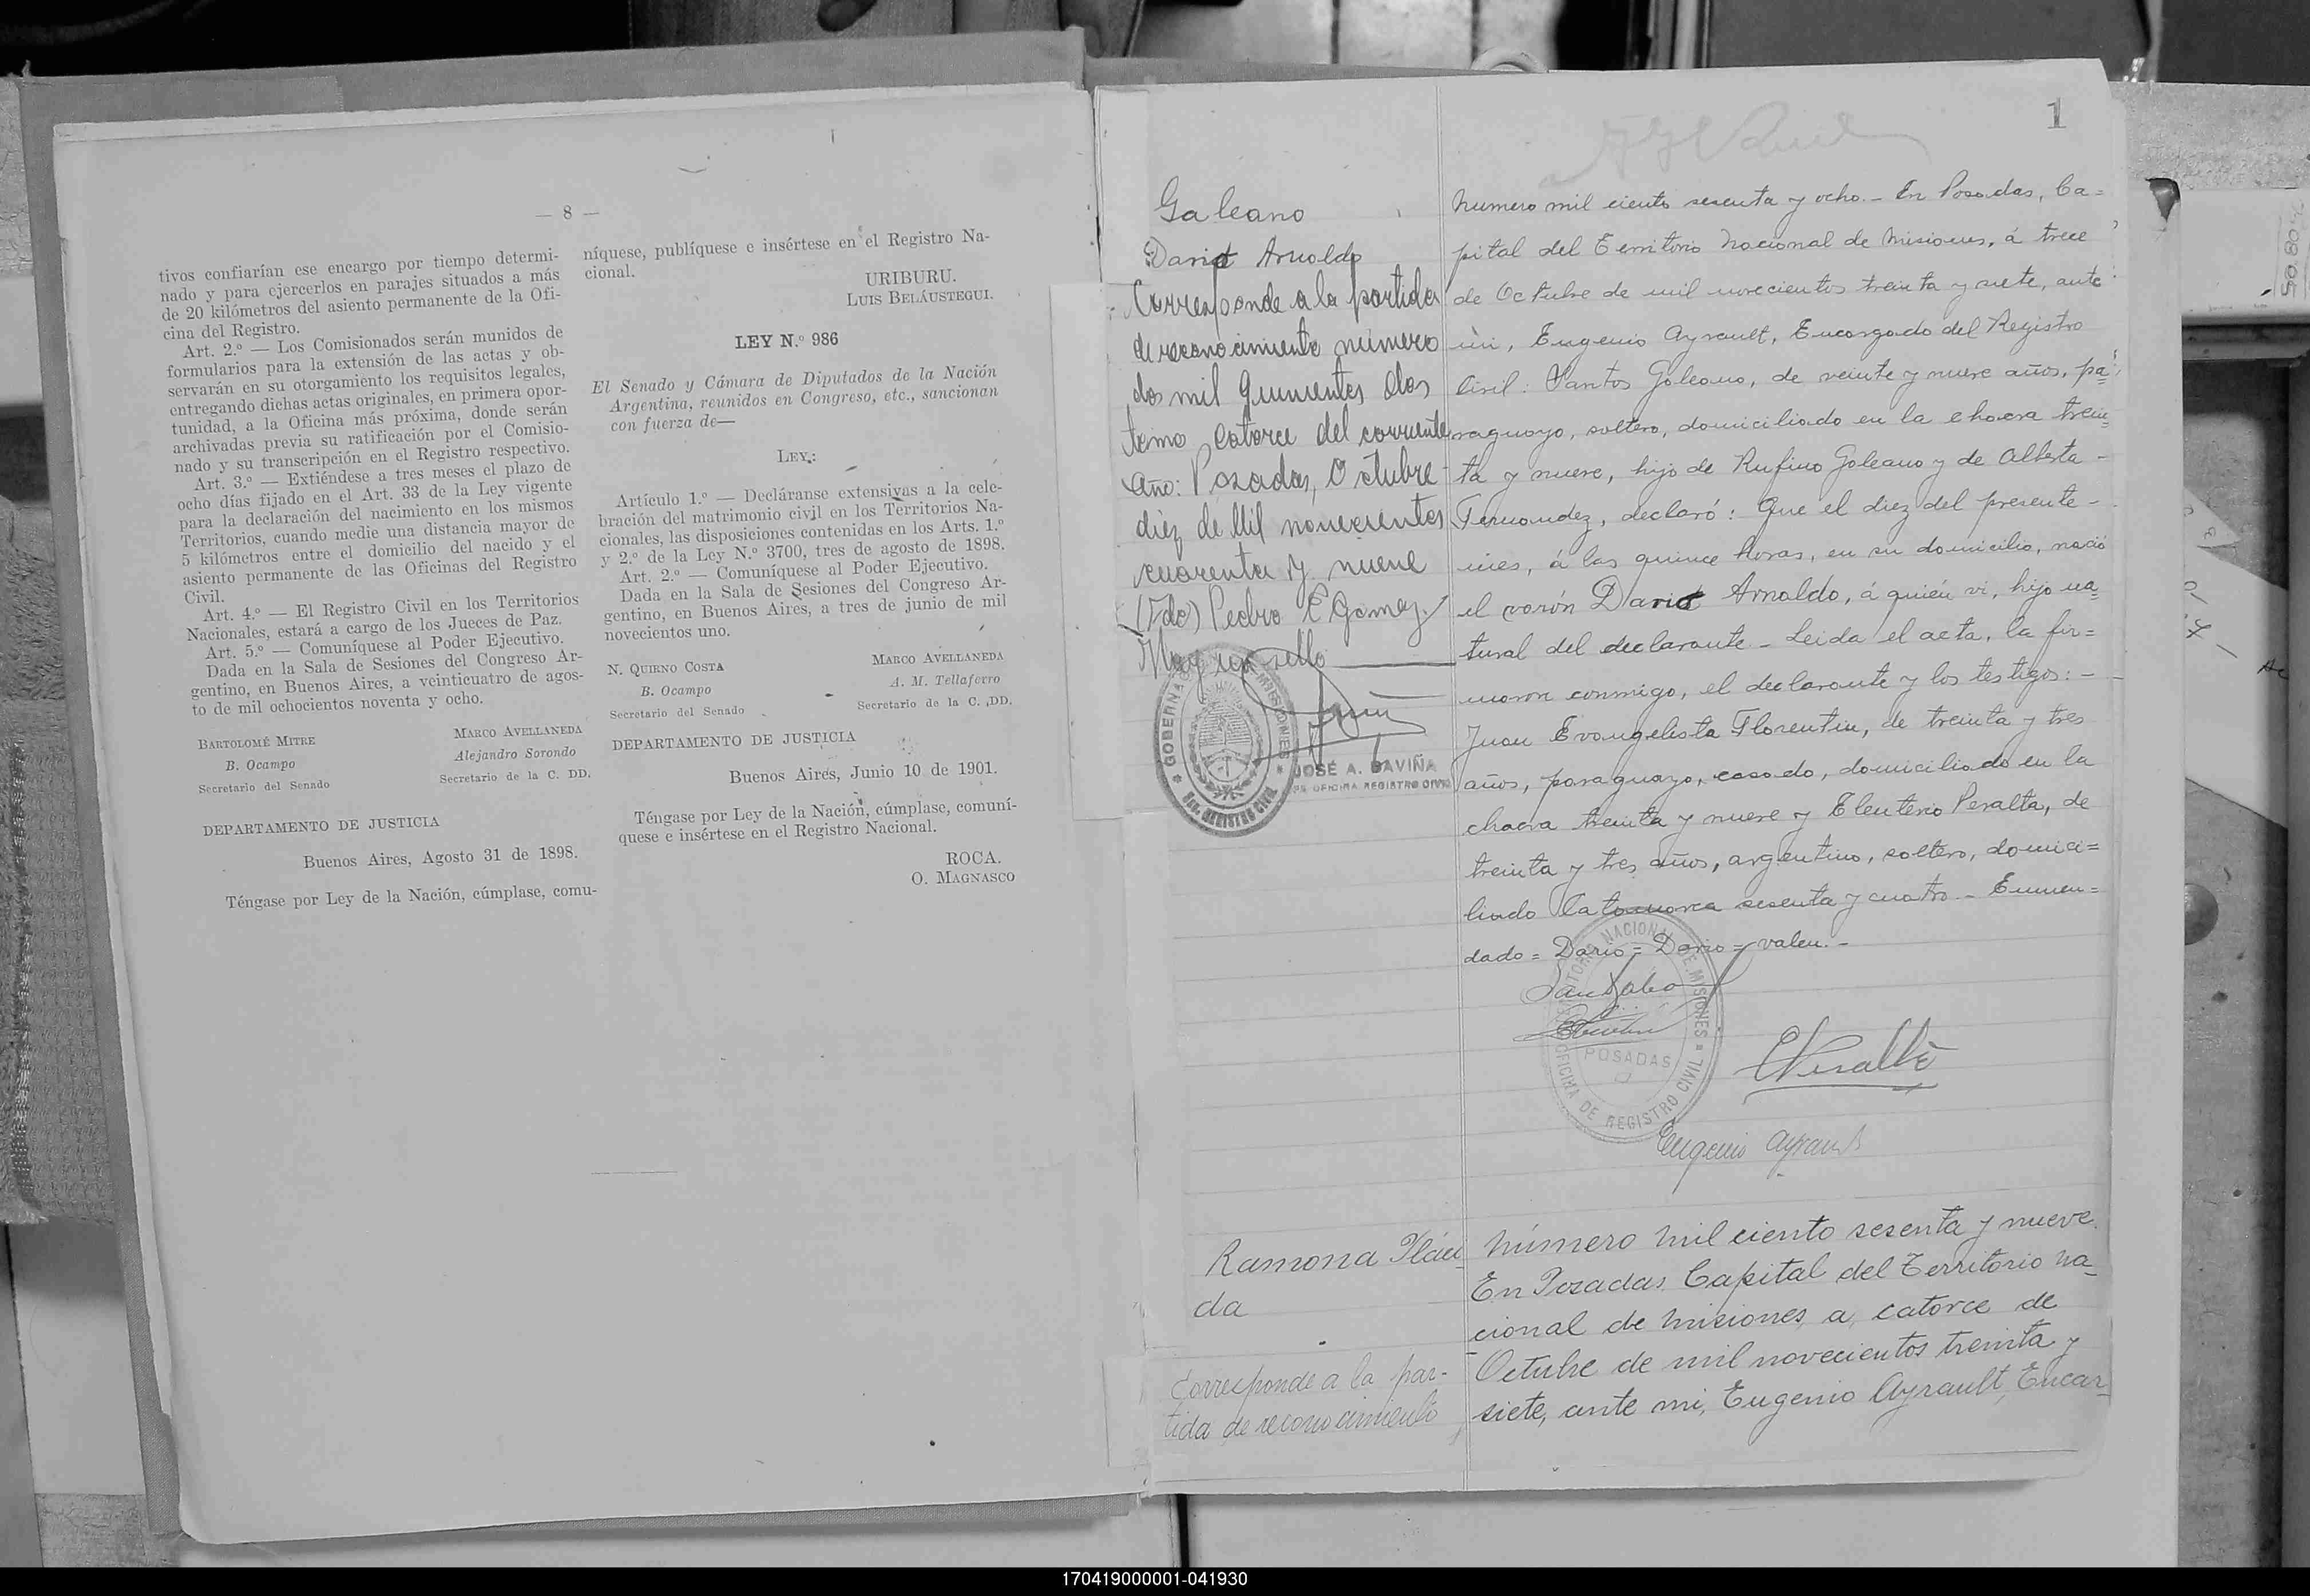 — 8 —
tivos confiarían ese encargo por tiempo determi-
nado y para ejercerlos en parajes situados a más
de 20 kilómetros del asiento permanente de la Ofi-
cina del Registro.
Art. 2.º — Los Comisionados serán munidos de
formularios para la extensión de las actas y ob-
servarán en su otorgamiento los requisitos legales,
entregando dichas actas originales, en primera opor-
tunidad, a la Oficina más próxima, donde serán
archivadas previa su ratificación por el Comisio-
nado y su transcripción en el Registro respectivo.
Art. 3.º — Extiéndese a tres meses el plazo de
ocho días fijado en el Art. 33 de la Ley vigente
para la declaración del nacimiento en los mismos
Territorios, cuando medie una distancia mayor de
5 kilómetros entre el domicilio del nacido y el
asiento permanente de las Oficinas del Registro
Civil.
Art. 4.º — El Registro Civil en los Territorios
Nacionales, estará a cargo de los Jueces de Paz.
Art. 5.º — Comuníquese al Poder Ejecutivo.
Dada en la Sala de Sesiones del Congreso Ar-
gentino, en Buenos Aires, a veinticuatro de agos-
to de mil ochocientos noventa y ocho.
BARTOLOMÉ MITRE MARCO AVELLANEDA
B. Ocampo Alejandro Sorondo
Secretario del Senado Secretario de la C. DD.
DEPARTAMENTO DE JUSTICIA
Buenos Aires, Agosto 31 de 1898.
Téngase por Ley de la Nación, cúmplase, comu-
níquese, publíquese e insértese en el Registro Na-
cional.
URIBURU.
LUIS BELÁUSTEGUI.
LEY N.º 986
El Senado y Cámara de Diputados de la Nación
Argentina, reunidos en Congreso, etc., sancionan
con fuerza de—
LEY:
Artículo 1.º — Decláranse extensivas a la cele-
bración del matrimonio civil en los Territorios Na-
cionales, las disposiciones contenidas en los Arts. 1.º
y 2.º de la Ley N.º 3700, tres de agosto de 1898.
Art. 2.º — Comuníquese al Poder Ejecutivo.
Dada en la Sala de Sesiones del Congreso Ar-
gentino, en Buenos Aires, a tres de junio de mil
novecientos uno.
N. QUIRNO COSTA MARCO AVELLANEDA
B. Ocampo A. M. Tallaferro
Secretario del Senado Secretario de la C. DD.
DEPARTAMENTO DE JUSTICIA
Buenos Aires, Junio 10 de 1901.
Téngase por Ley de la Nación, cúmplase, comuní-
quese e insértese en el Registro Nacional.
ROCA.
O. MAGNASCO
1
Galeano
Dario Arnoldo
Corresponde a la partida
de reconocimiento número
dos mil quinientos dos
tomo catorce del corriente
año: Posadas, Octubre
diez de Mil novecientos
cuarenta y nueve
(Fdo) Pedro E Gomez
Hay un sello
GOBERNACION MISIONES
REGISTRO CIVIL
JOSÉ A. GAVIÑA
OFICINA REGISTRO CIVIL
Número mil ciento sesenta y ocho.- En Posadas, Ca=
pital del Territorio Nacional de Misiones, á trece
de Octubre de mil novecientos treinta y siete, ante
mi, Eugenio Ayrault, Encargado del Registro
Civil: Santos Galeano, de veinte y nueve años, pa=
raguayo, soltero, domiciliado en la chacra trein=
ta y nueve, hijo de Rufino Galeano y de Alberta -
Fernandez, declaró: Que el diez del presente -
mes, á las quince horas, en su domicilio, nació
el varón Dario Arnoldo, á quién vi, hijo na=
tural del declarante - Leida el acta, la fir=
maron conmigo, el declarante y los testigos: -
Juan Evangelista Florentin, de treinta y tres
años, paraguayo, casado, domiciliado en la
chacra treinta y nueve y Eleuterio Peralta, de
treinta y tres años, argentino, soltero, domici=
liado Catamarca sesenta y cuatro - Enmen=
dado = Dario = Dario = valen. -
TERRITORIO NACIONAL DE MISIONES
OFICINA DE REGISTRO CIVIL
POSADAS
EPeralta
Eugenio Ayrault
Ramona Pláci
da
Corresponde a la par-
tida de reconocimiento
Número mil ciento sesenta y nueve.
En Posadas Capital del Territorio Na-
cional de Misiones, a catorce de
Octubre de mil novecientos treinta y
siete, ante mi, Eugenio Ayrault, Encar-
170419000001-041930